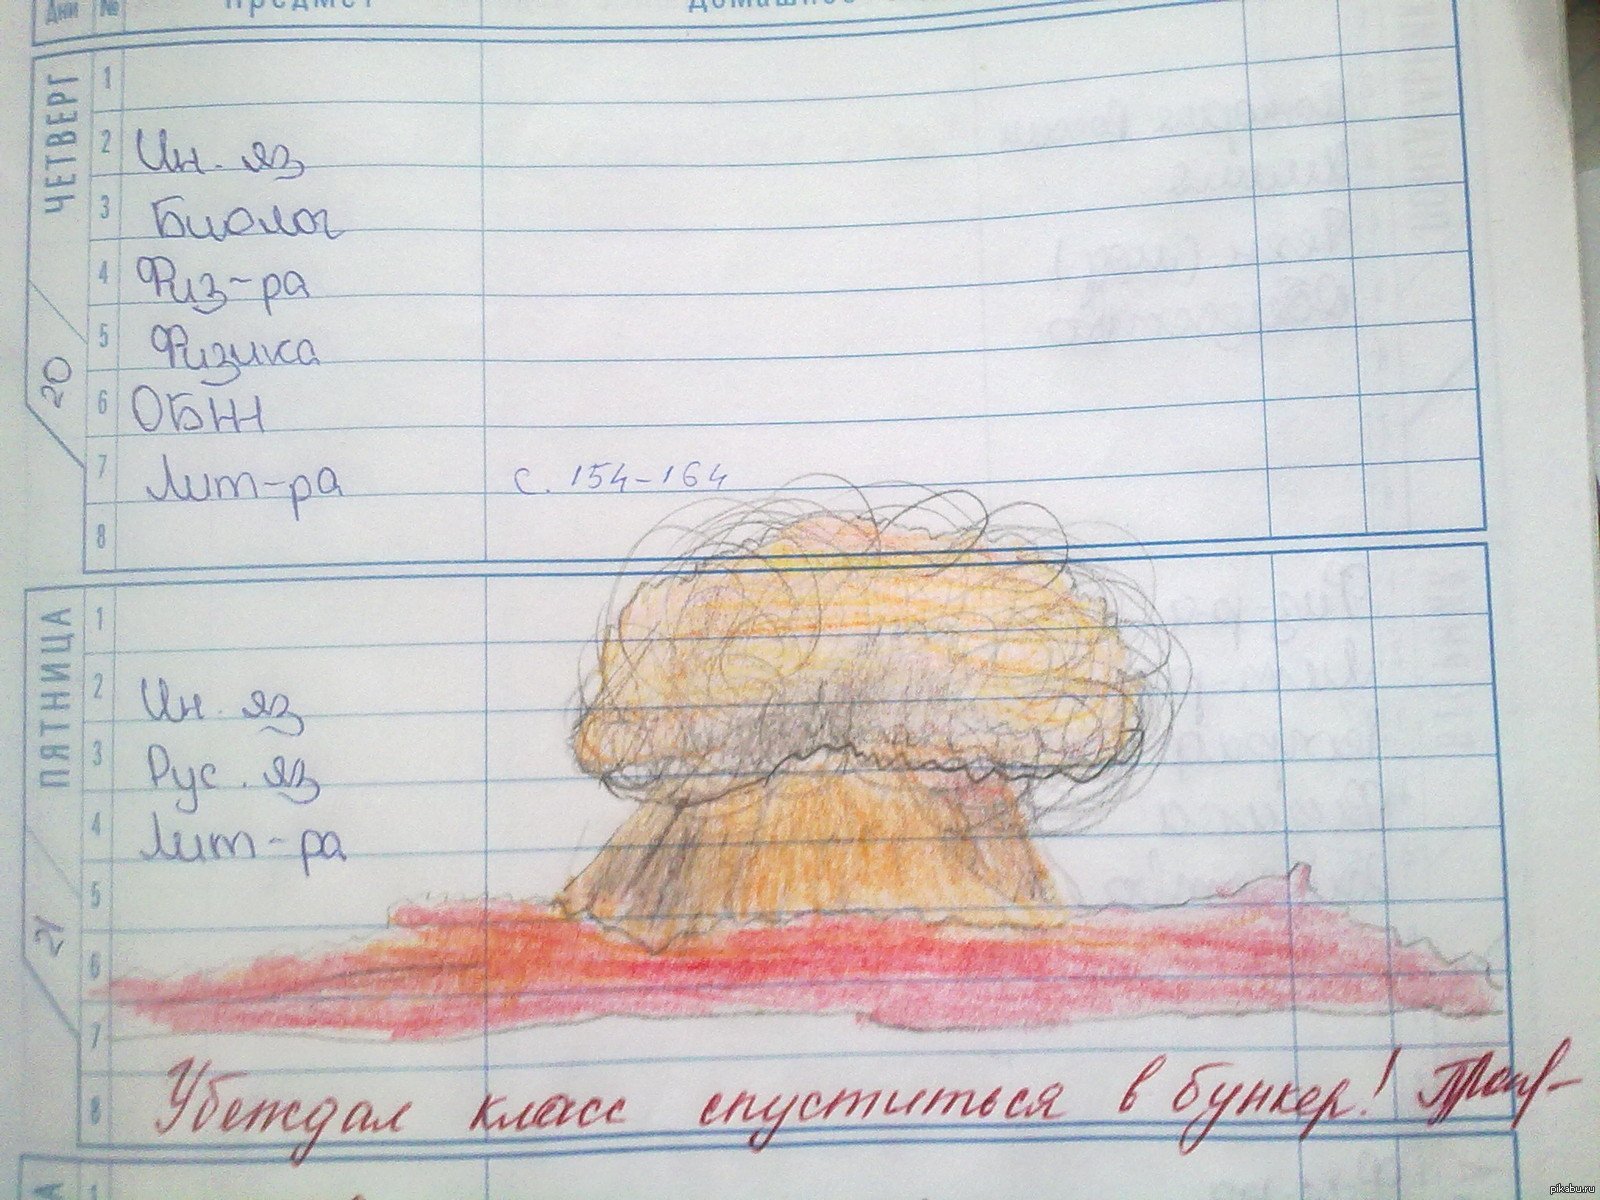 Дни № Предмет Домашнее
ЧЕТВЕРГ
20
1
2 Ин. яз
3 Биолог
4 Физ-ра
5 Физика
6 ОБЖ
7 Лит-ра с. 154-164
8
ПЯТНИЦА
21
1
2 Ин. яз
3 Рус. яз
4 Лит-ра
5
6
7
8 Убеждал класс спуститься в бункер!
1
pikabu.ru